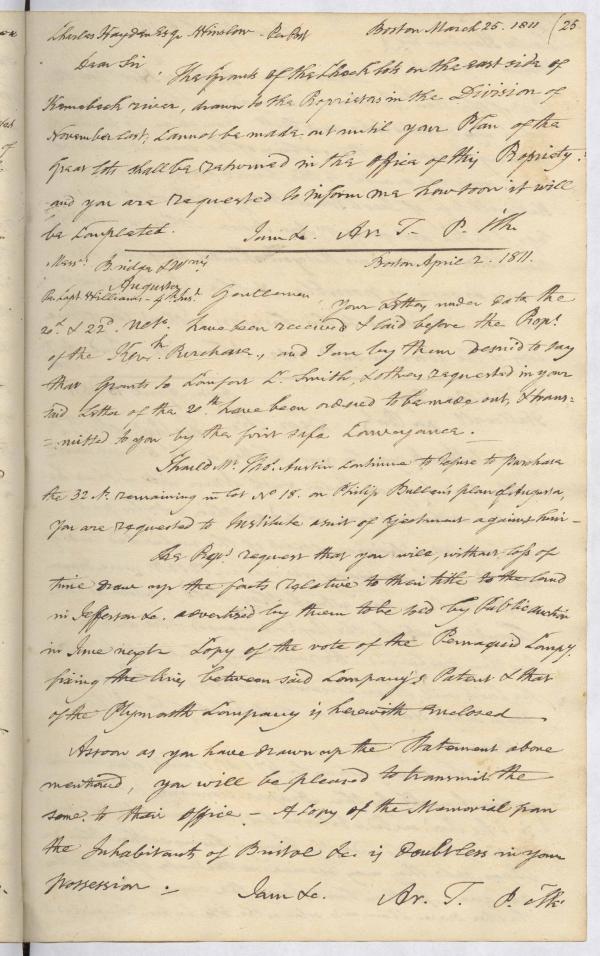 Charles Hayden Esqr Winslow - Per Post Boston March 25. 1811 (25
Dear Sir
The Grants of the Back lots on the east side of
Kennebeck river, drawn to the Proprietors in the Division of
November last, cannot be made out until your Plan of the
Great lots shall be returned in the office of this Propriety.
and you are requested to inform me how soon it will
be Completed. I am &c. Ar. T. P. Clk
Messrs Bridge & Wms Boston April 2. 1811.
Augusta
Per Capt Williams - 4th Inst Gentlemen, Your Letters under date the
20th & 22d. have been received & laid before the Propr
of the Kenn. Purchase, and I am by them Desired to say
that Grants to Comfort C. Smith, & others requested in your
said Letter of the 20th have been ordered to be made out, & trans=
=mitted to you by the first safe Conveyance. -
Should Mr. Thos. Austin continue to refuse to purchase
the 32 A. remaining in lot No 18. on Philip Bullen's plan of Augusta,
You are requested to Institute a suit of ejectment against him -
The Propr request that you will, without loss of
time draw up the facts relative to their title to the land
in Jefferson &c. advertised by them to be sold by Public Auction
in June next. Copy of the vote of the Pemaquid Compy.
fixing the lines between said Company's Patent & that
of the Plymouth Company is herewith enclosed
As soon as you have drawn up the Statement above
mentioned, you will be pleased to transmit the
same to their office - A Copy of the Memorial from
the Inhabitants of Bristol &c is doubtless in your
possession. - I am &c. Ar. T. P. Clk